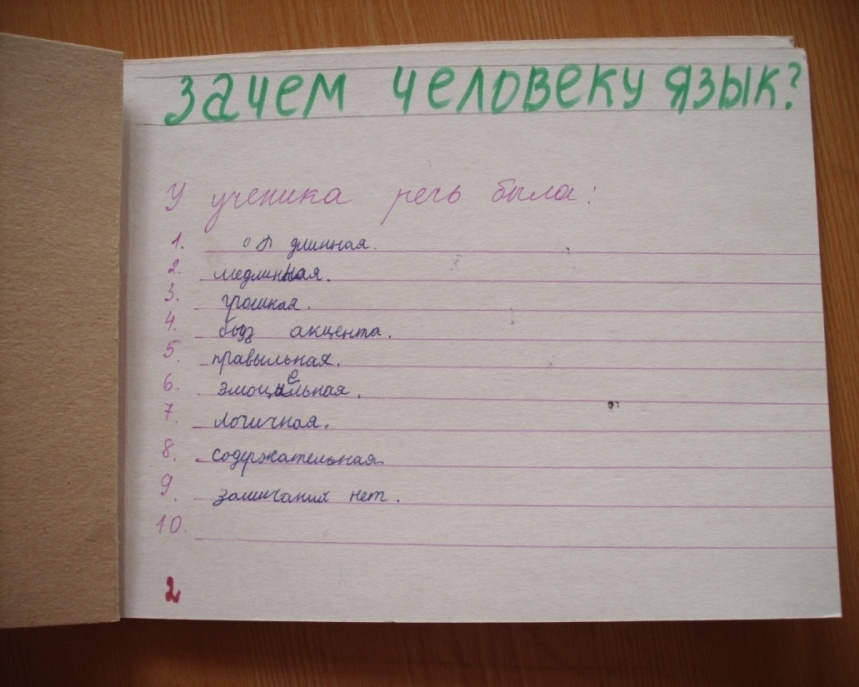 Зачем человеку язык?
У ученика речь была:
1. длинная.
2. медлинная.
3. грошкая.
4. бьдз акцента.
5. правыльная.
6. эмоциельная.
7. логичная.
8. содержательная
9. замичаних нет.
10.
2